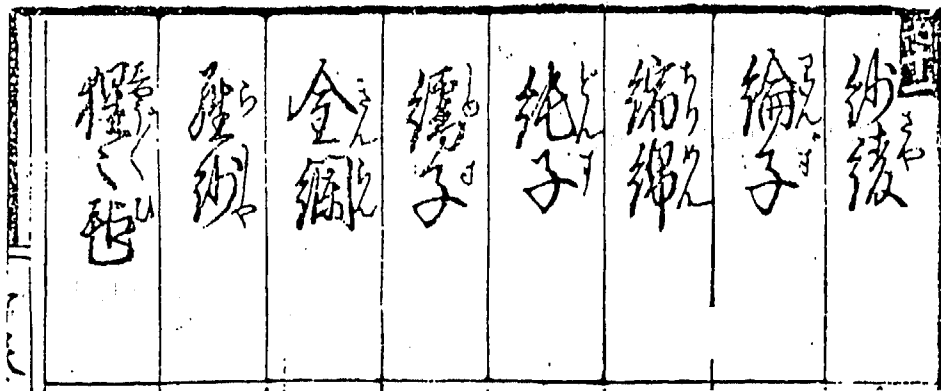 紗綾
さや
綸子
りんず
縮綿
ちりめん
純子
どんす
繻子
しゆす
金襴
きんらん
羅紗
らしや
猩々